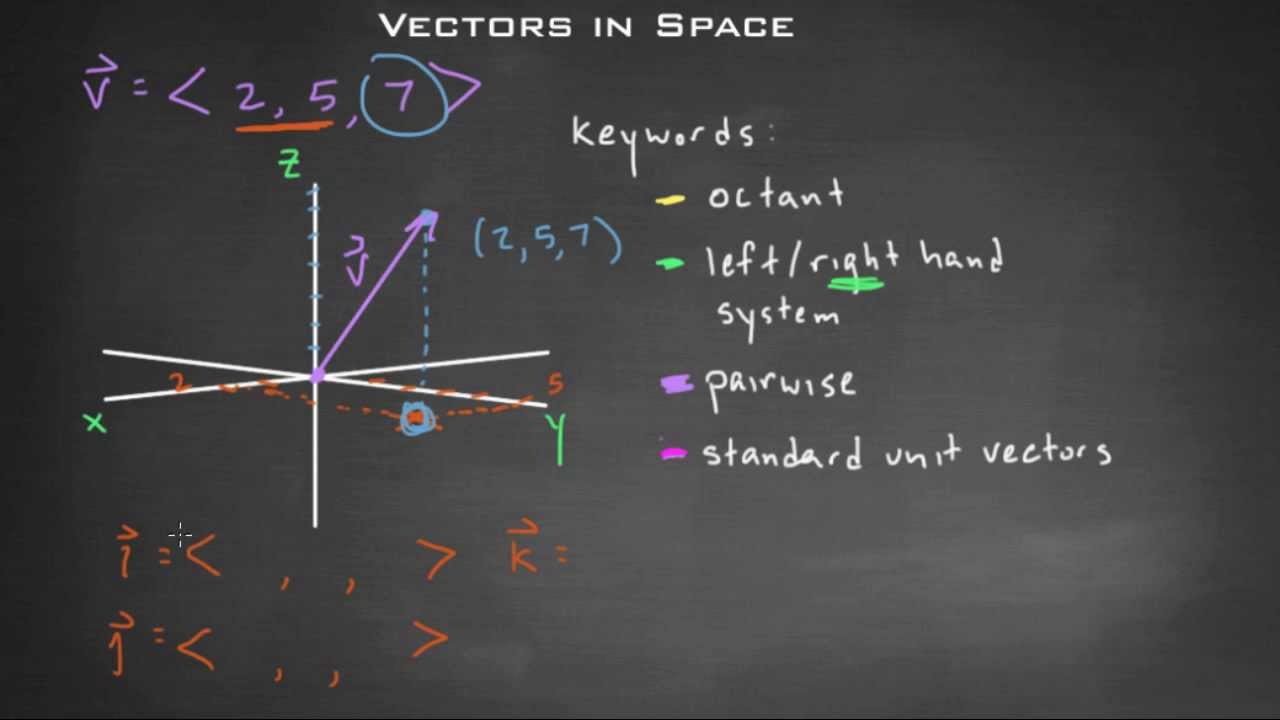 VECTORS IN SPACE
v⃗ = < 2, 5, 7 >
keywords:
z
- octant
(2, 5, 7)
v⃗
- left/right hand
system
2
5
- pairwise
x
y
- standard unit vectors
i⃗ = < , , > k⃗ =
j⃗ = < , , >